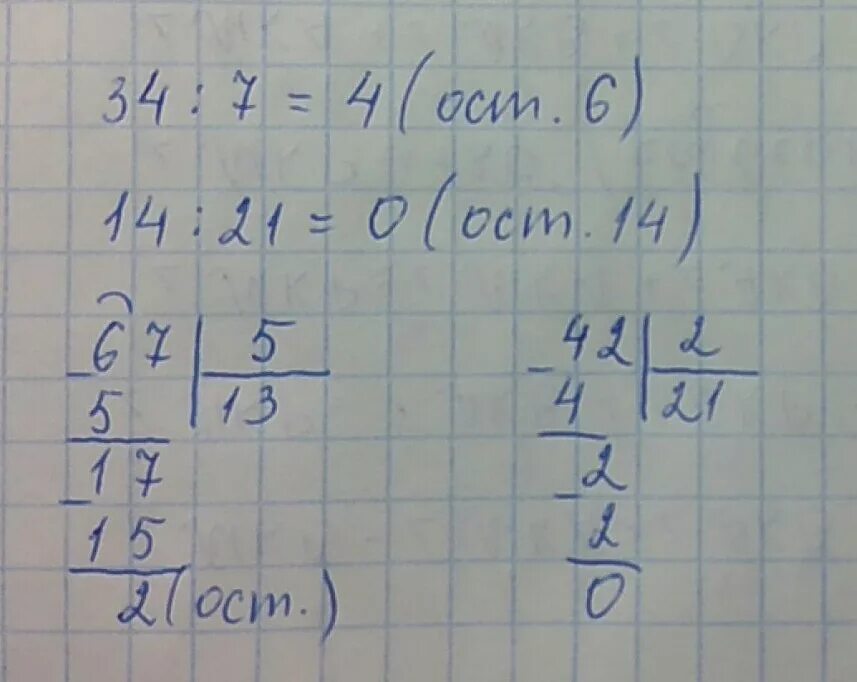 34 : 7 = 4 (ост. 6)
14 : 21 = 0 (ост. 14)
- 67 | 5
5 | 13
- 17
15
2 (ост.)
- 42 | 2
4 | 21
- 2
2
0